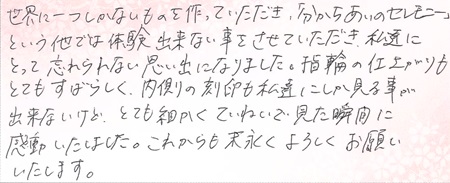 世界に一つしかないものを作っていただき、「分かちあいのセレモニー」
という他では体験出来ない事をさせていただき、私達に
とって忘れられない思い出になりました。指輪の仕上がりも
とてもすばらしく、内側の刻印も私達にしか見る事が
出来ないけど、とても細かくていねいで見た瞬間に
感動いたしました。これからも末永くよろしくお願い
いたします。